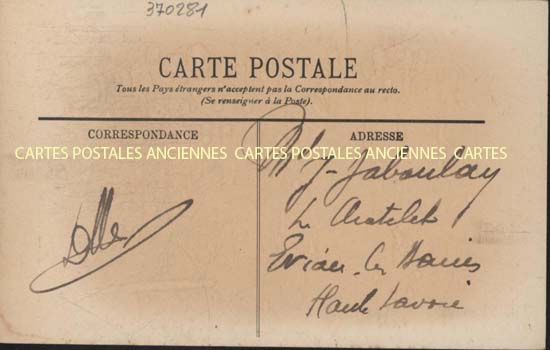 370281
CARTE POSTALE
Tous les Pays étrangers n'acceptent pas la Correspondance au recto.
(Se renseigner à la Poste).
CORRESPONDANCE
ADRESSE
CARTES POSTALES ANCIENNES CARTES POSTALES ANCIENNES CARTES
Jaboulay
Le Chatelet
Evian-les Bains
Haute Savoie